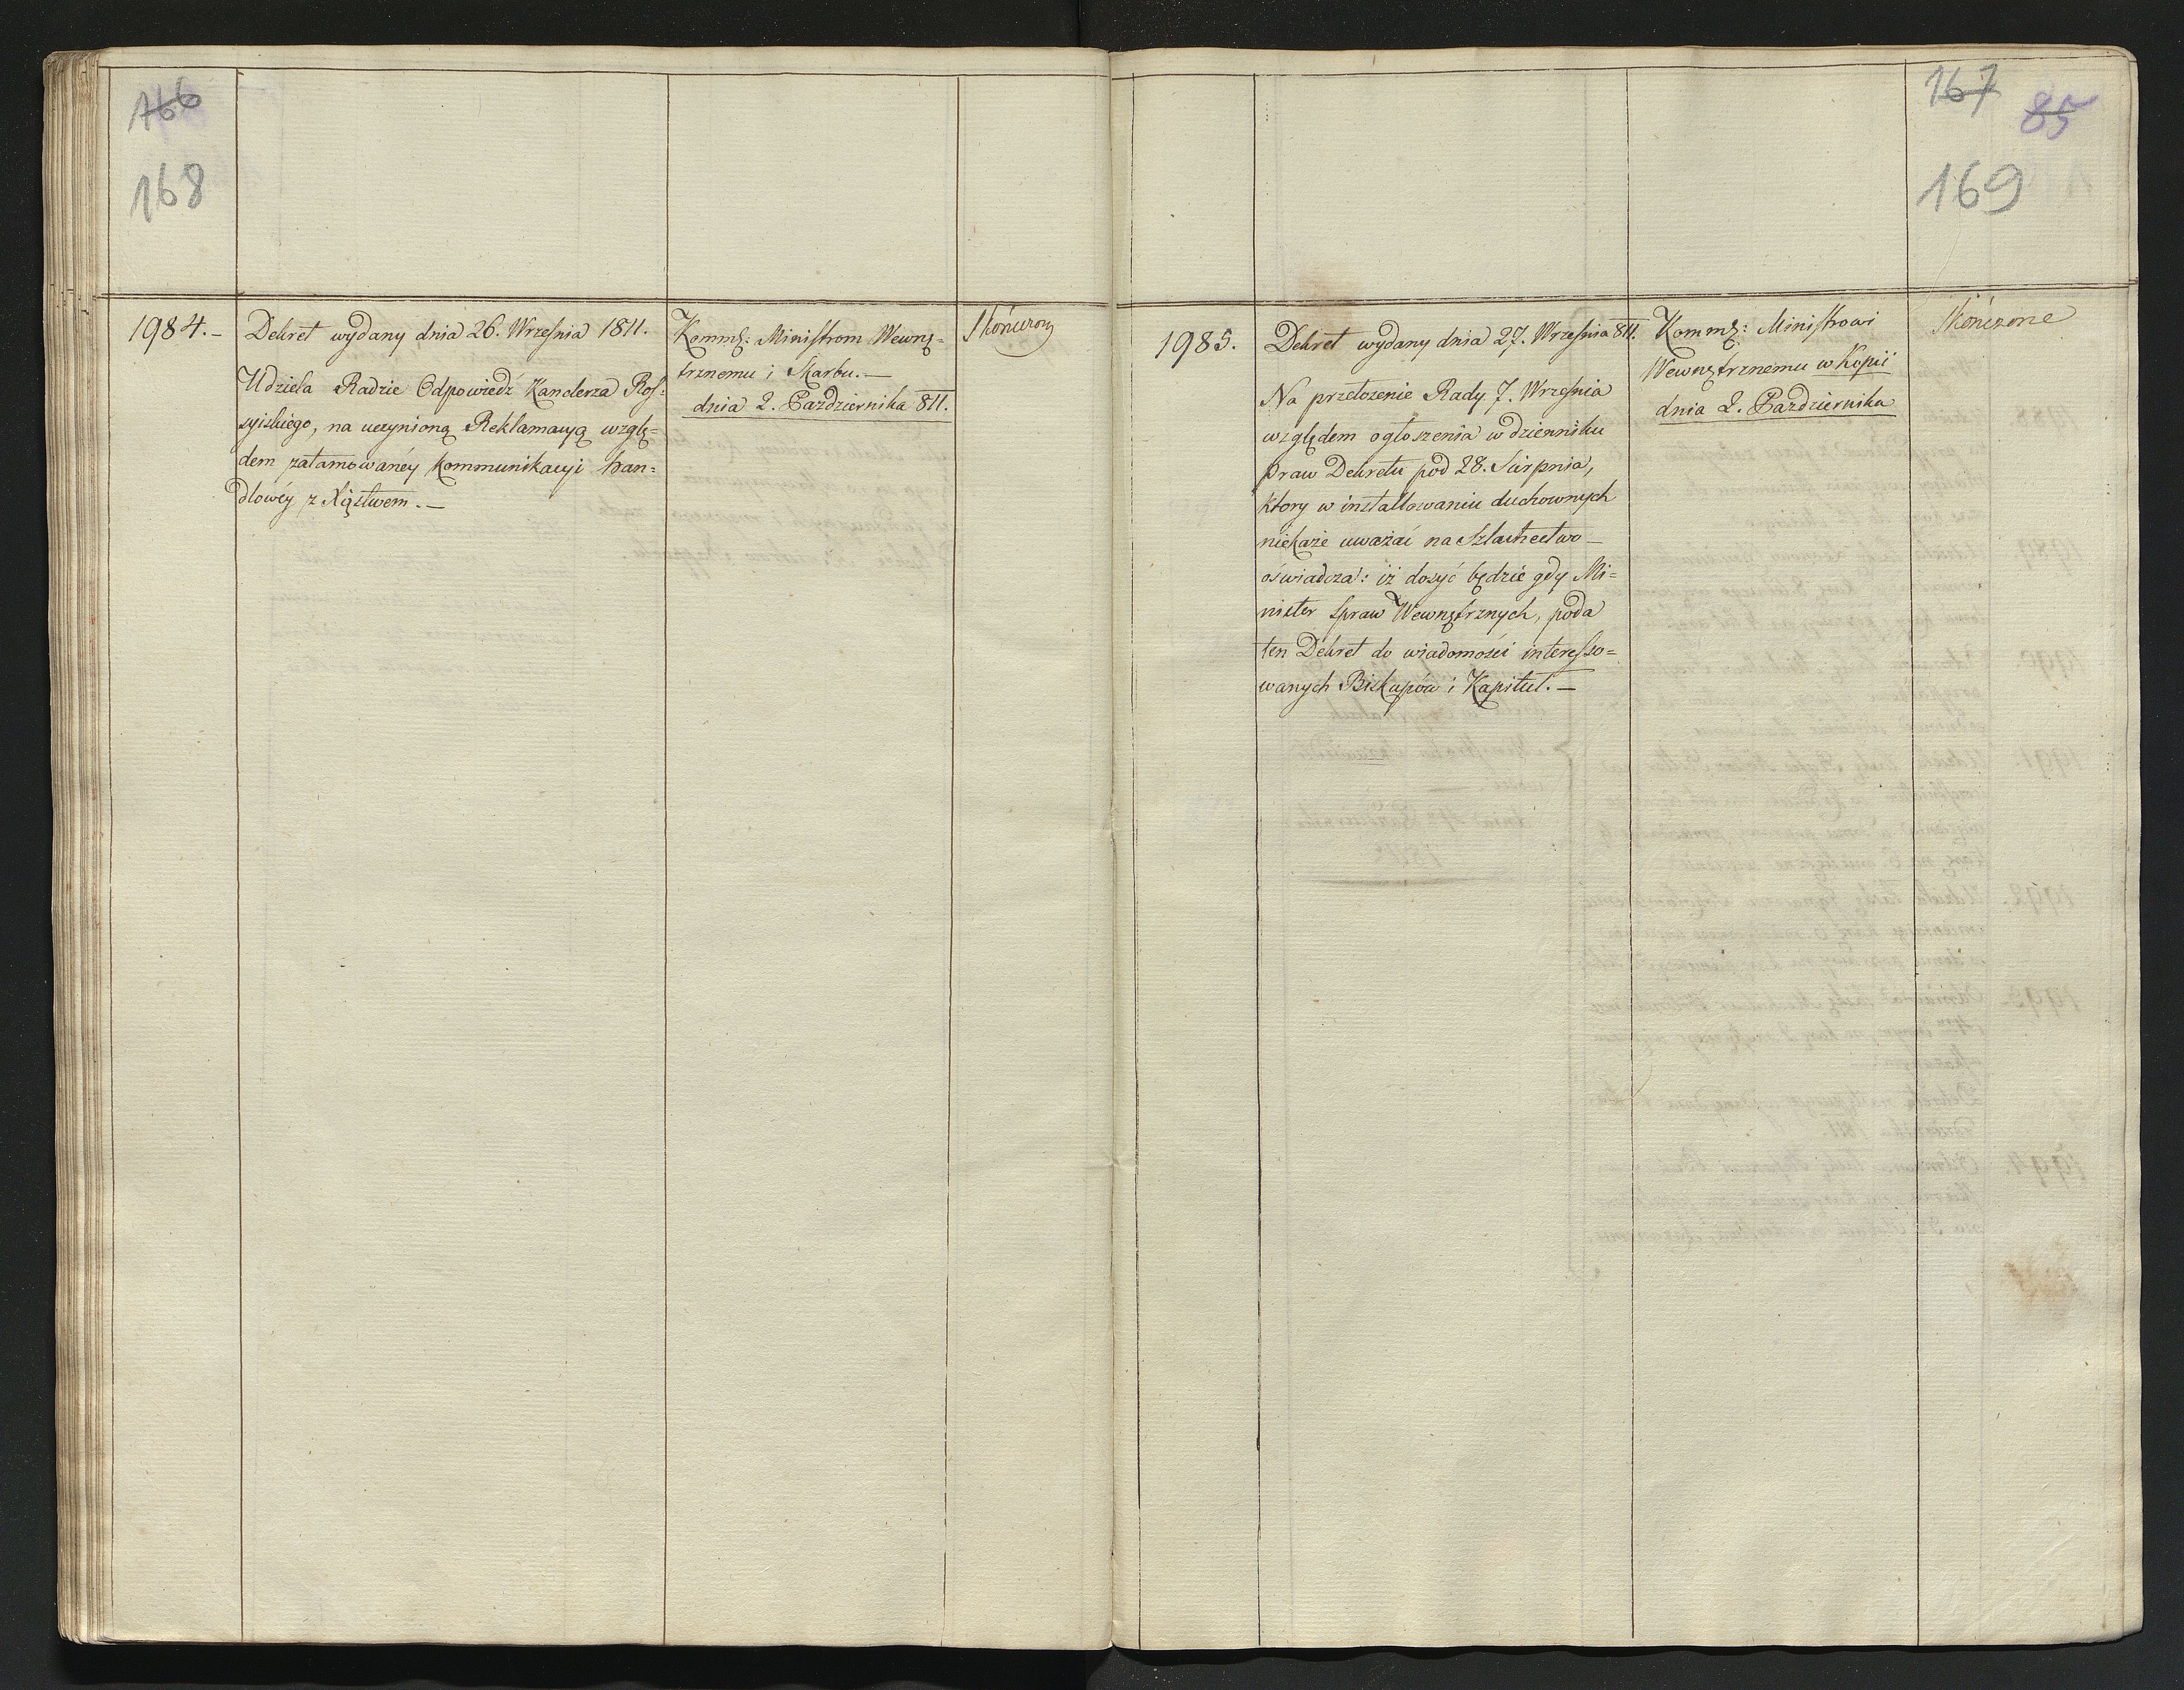 166
168
1984.-
Dekret wydany dnia 26. Września 1811.
Udziela Radzie Odpowiedź Kanclerza Ros-
syiskiego, na uczynioną Reklamacyą wzglę=
dem zatamowanéy Kommunikacyi han=
dlowéy z Xięstwem.—
Kommẟ: Ministrom Wewnę=
trznemu i Skarbu.—
dnia 2. Pazdziernika 811.
Skończony
167
85
169
1985.
Dekret wydany dnia 27. Września 811.
Na przełozenie Rady 7. Września
względem ogłoszenia w dzienniku
praw Dekretu pod 28. Sierpnia,
ktory w installowaniu duchownych
niekaże uważać na Szlachectwo—
oświadcza: iż dosyć będzie gdy Mi=
nister Spraw Wewnętrznych, poda
ten Dekret do wiadomości interesso=
wanych Biskupów i Kapituł.—
Kommẟ: Ministrowi
Wewnętrznemu w Kopii
dnia 2. Pazdziernika
Skończone